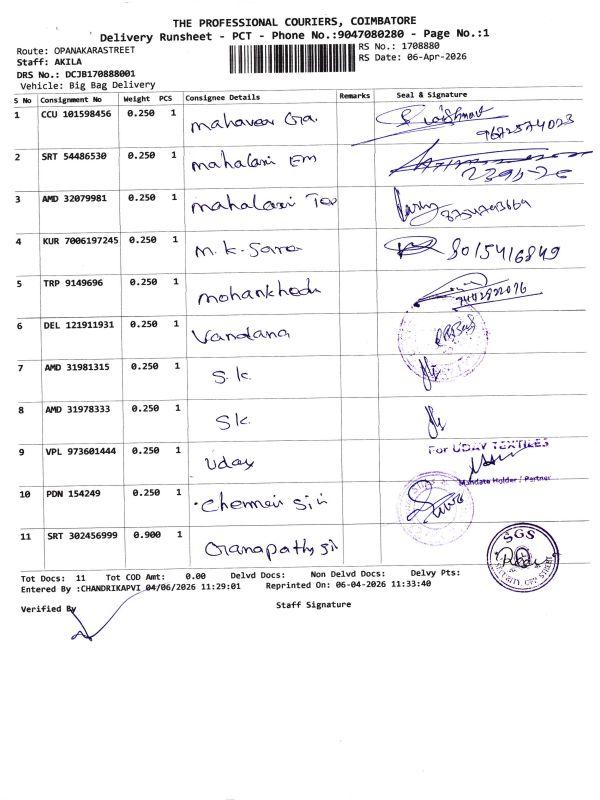 THE PROFESSIONAL COURIERS, COIMBATORE
Delivery Runsheet - PCT - Phone No.:9047080280 - Page No.:1
Route: OPANAKARASTREET
RS No.: 1708880
Staff: AKILA
RS Date: 06-Apr-2026
DRS No.: DCJB170888001
Vehicle: Big Bag Delivery
S No Consignment No Weight PCS Consignee Details Remarks Seal & Signature
1 CCU 101598456 0.250 1 mahaveer
2 SRT 54486530 0.250 1 mahalaxi Em
3 AMD 32079981 0.250 1 mahalaxi Tex
4 KUR 7006197245 0.250 1 m.k. 8015416849
5 TRP 9149696 0.250 1
6 DEL 121911931 0.250 1 Vandana
7 AMD 31981315 0.250 1 S.K.
8 AMD 31978333 0.250 1 SK
9 VPL 973601444 0.250 1 Uday For UDAY TEXTILES
Mandate Holder / Partner
10 PDN 154249 0.250 1 Chennai
11 SRT 302456999 0.900 1 Ganapathy SGS
Tot Docs: 11 Tot COD Amt: 0.00 Delvd Docs: Non Delvd Docs: Delvy Pts:
Entered By :CHANDRIKAPVI 04/06/2026 11:29:01 Reprinted On: 06-04-2026 11:33:40
Verified By Staff Signature